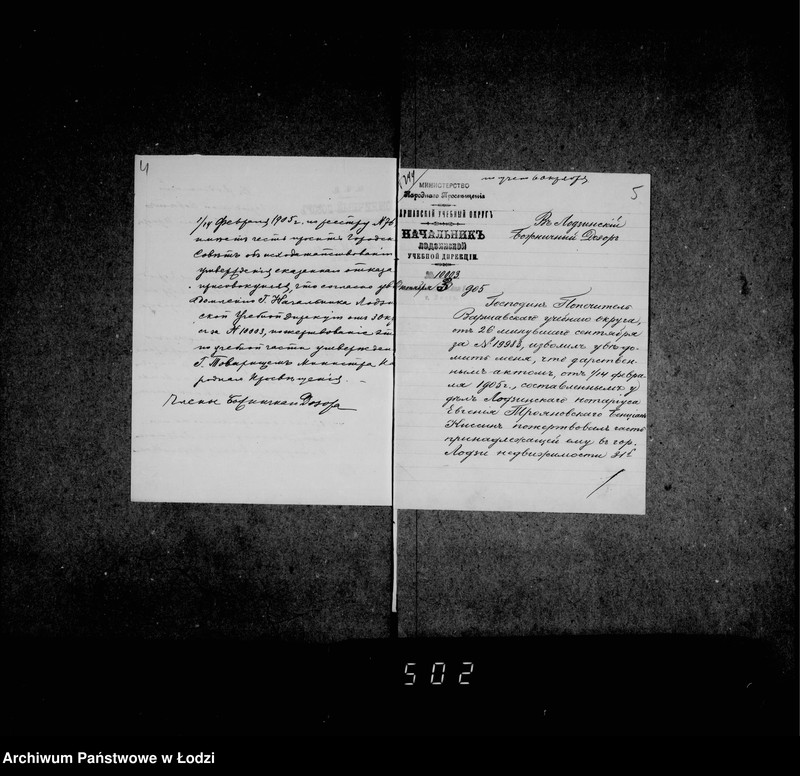 4
1/14 Февраля 1905 г. по реестру №
имеетъ честь просить Городск
Советъ объ исходатайствовании
утверждения сказанная отказа
присовокупляя, что согласно ув
домлению Г. Начальника Лодзи
ской Учебной Дирекции отъ 3 Ок
с/г № 10003, пожертвование это
по учебной части утвержден
Г. Товарищемъ Министра На
роднаго Просвещения.
Члены Божничнаго Дозора
5
МИНИСТЕРСТВО
Народнаго Просвѣщенія
ВАРШАВСКІЙ УЧЕБНЫЙ ОКРУГЪ
НАЧАЛЬНИКЪ
ЛОДЗИНСКОЙ
УЧЕБНОЙ ДИРЕКЦІИ.
№ 10003
Октября 3 1905
Въ Лодзинскій
Божничный Дозоръ
Господинъ Попечитель
Варшавскаго учебнаго округа,
отъ 26 минувшаго сентября
за №, изволилъ увѣдо-
мить меня, что дарствен-
нымъ актомъ, отъ 1/14 февра-
ля 1905 г., составленнымъ у
Лодзинскаго нотаріуса
Евгенія Трояновскаго
Киссинъ пожертвовалъ часть
принадлежащей ему въ гор.
Лодзи недвижимости
502
Archiwum Państwowe w Łodzi